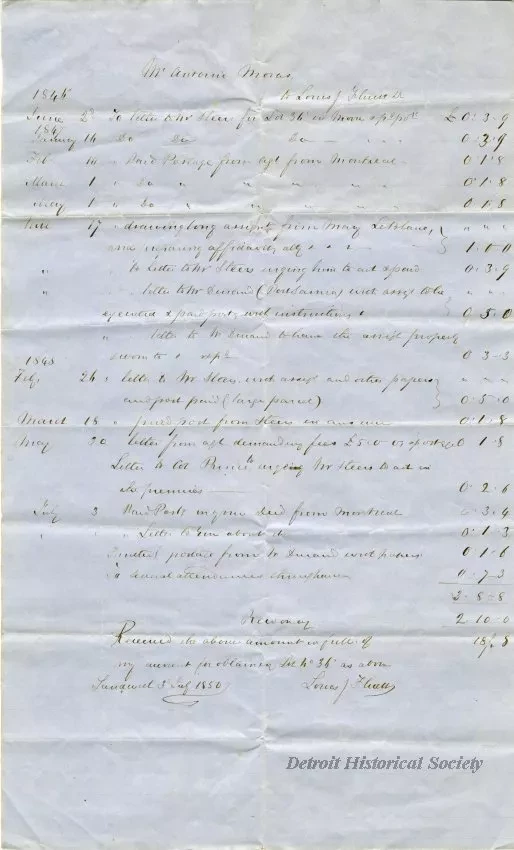 Mr Antoine Moras
1846 to Louis J Fluett Dr
June 23 To letter to Mr Steers for Lot 36 in Moore & pd post £ 0 : 3 . 9
1847
January 14 Do Do Do 0 : 3 . 9
Feb 14 " Paid Postage from agt from Montreal 0 1 . 8
March 1 " Do " " " " 0 1 . 8
May 1 " Do " " " " 0 1 . 8
17 " drawing long assignt from May Leblanc, " " "
and affidavits 1 . 0 . 0
" " to Letter to Mr Steers urging him to act & paid 0 : 3 . 9
" " letter to Mr Durand (Port Sarnia) with assigt to be " " "
executed & paid post, with instructions 0 . 5 . 0
" letter to Mr Durand to have the assigt properly
sworn to 0 . 3 - 3
1848
Feb 26 " letter to Mr Steers with assigt and other papers " " "
and post paid (large parcel) 0 . 5 . 0
March 18 " paid post from Steers in answer 0 . 1 . 8
May 20 " letter from agt demanding fees £5.0 0 1 . 8
Letter to Col Prince urging Mr Steers to act in
the premises 0 . 2 . 6
July 3 Paid Post deed from Montreal 0 . 3 . 4
" " Letter to you about it 0 . 1 . 3
postage from Mr Durand with papers 0 1 6
To several attendances throughout 0 . 7 - 3
3 - 8 - 8
2 - 10 - 0
Received the above amount in full of 18/ 8
my account for obtaining Lot No 36 as above
Sandwich 3 July 1850 Louis J Fluett
Detroit Historical Society